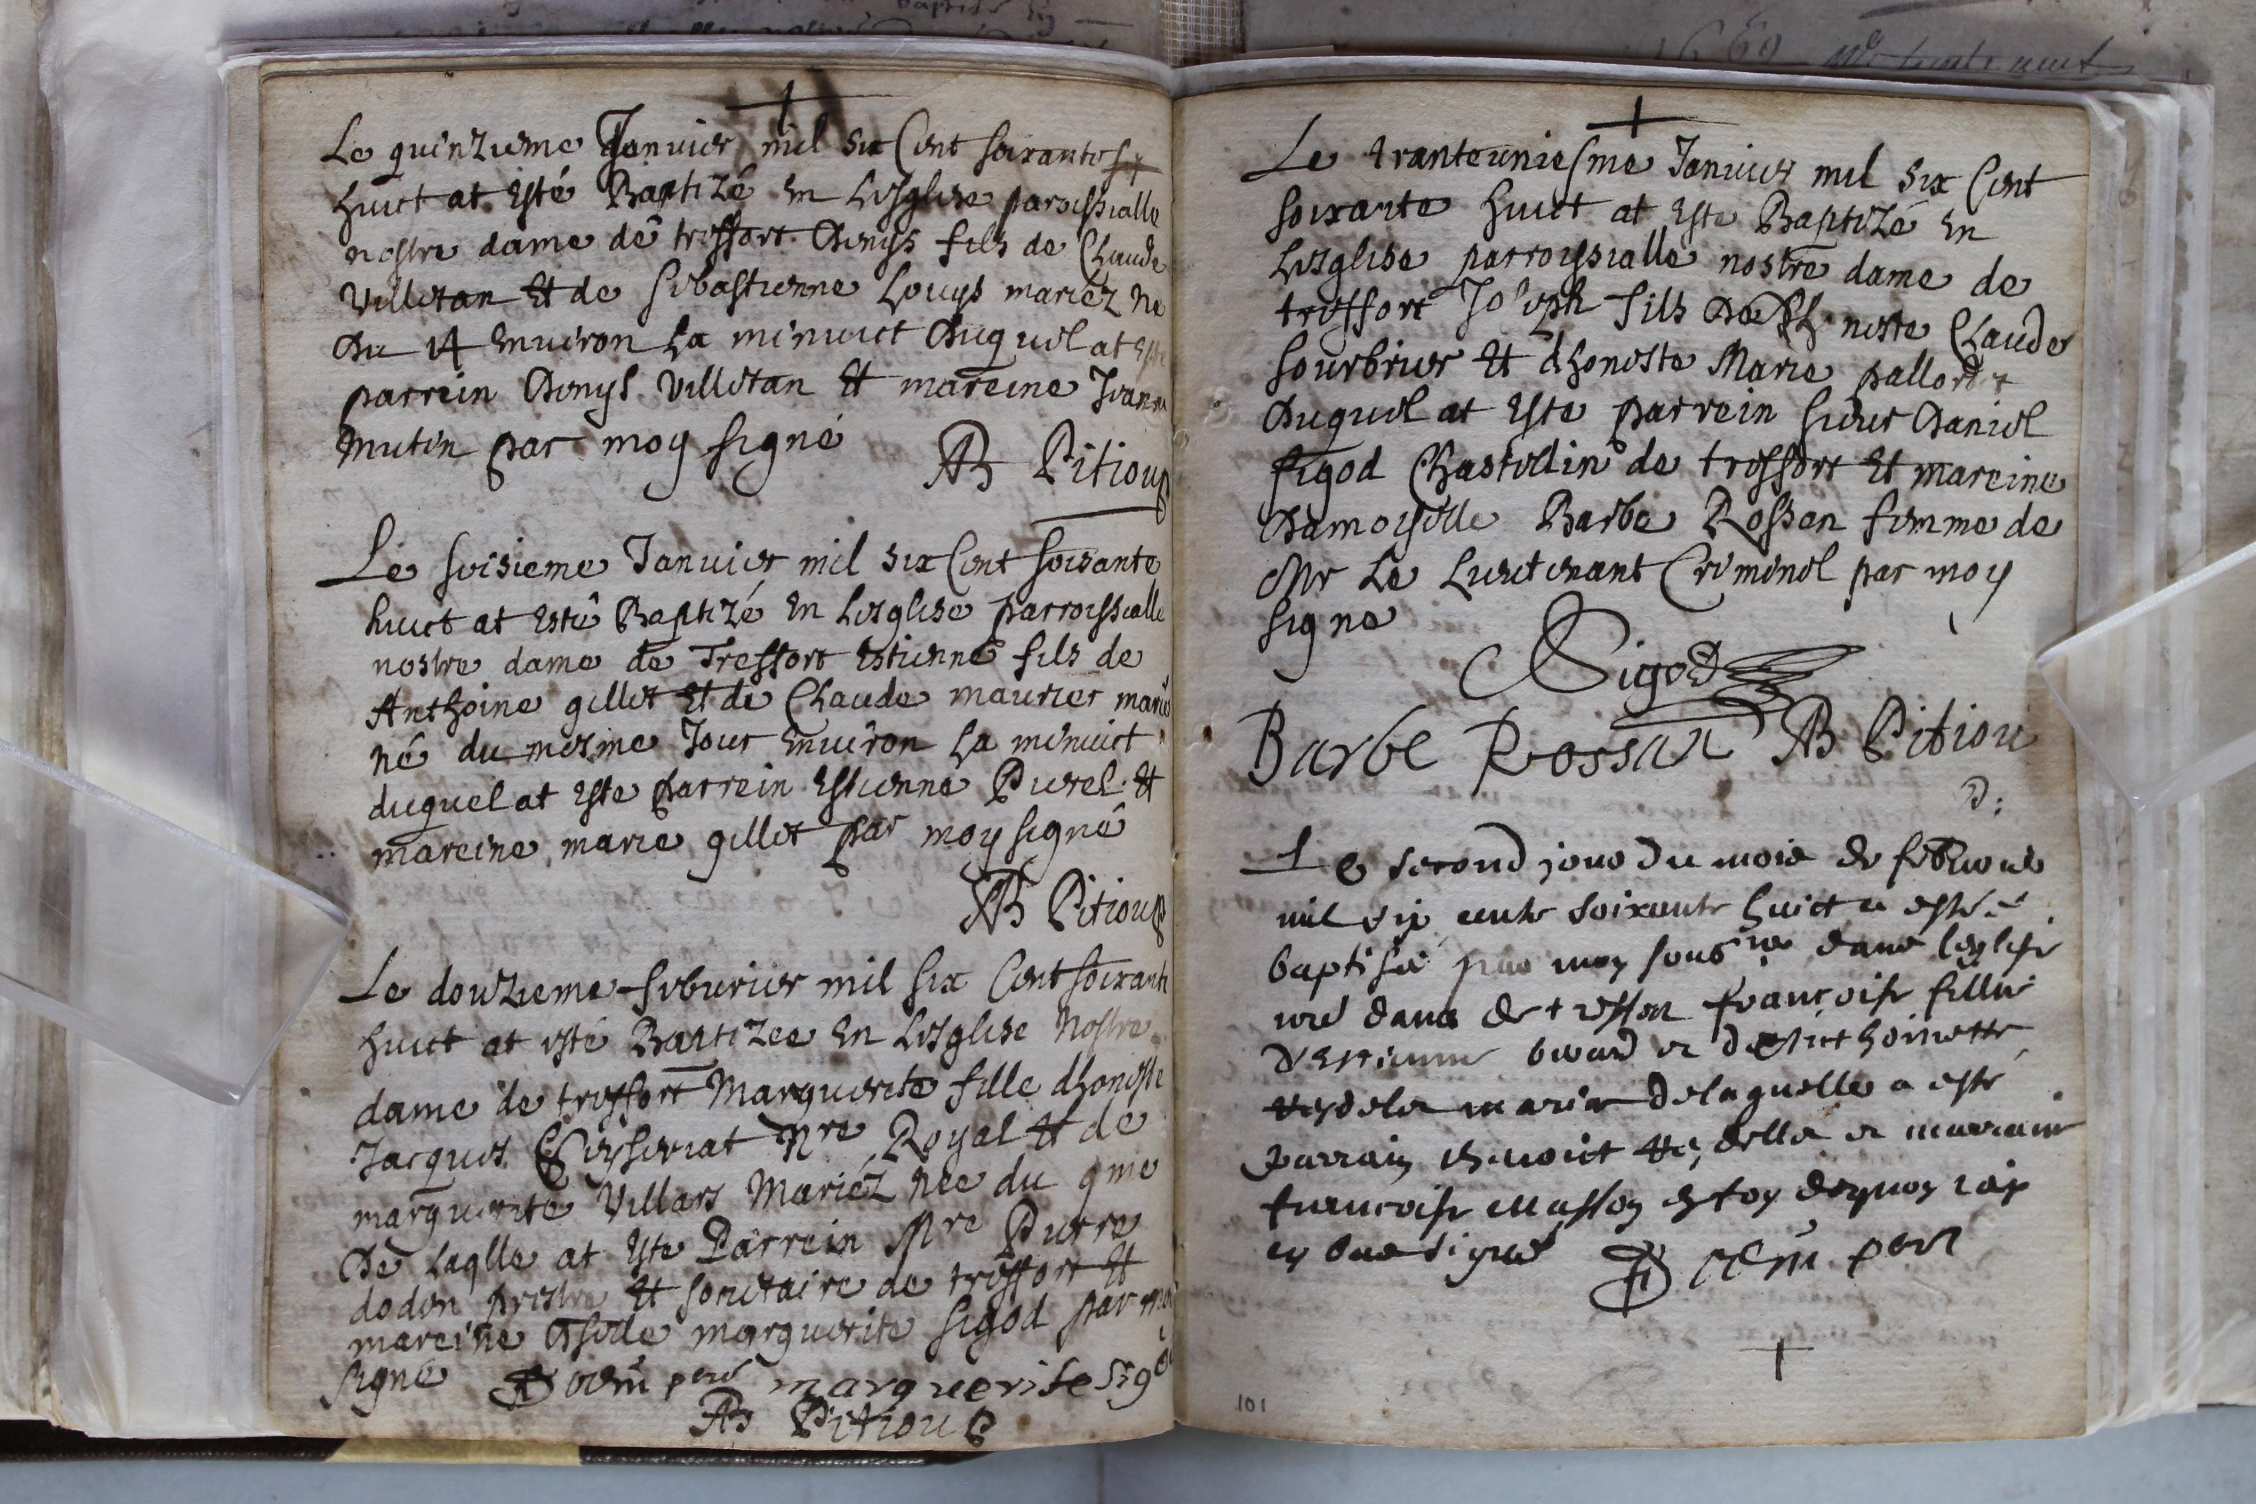 Le quinzieme Janvier mil six Cent soixante
huict at esté Baptizé en Lesglise paroissialle
nostre dame de treffort Denys fils de Claude
Villetan Et de Sebastienne Louys mariez ne
Du 14 environ La minuict Duquel at este
parrein Denys Villetan Et mareine Jeanne
Mutin par moy signé
AB Pitiou
Le seisieme Janvier mil six Cent soisante
huict at esté Baptizé en Lesglise parroissialle
nostre dame de Treffort Estienne fils de
Anthoine gillet Et de Claude maurier mariés
né du mesme Jour environ La minuict
duquel at este parrein Estienne Purel Et
mareine marie gillet par moy signé
AB Pitiou
Le douzieme feburier mil six Cent soixante
huict at esté Baptizee en Lesglise Nostre
dame de treffort Marguerite fille dhoneste
Jacques Nre Royal Et de
marguerite Villars Mariéz née du 9me
De Laqlle at este Parrein Mre Pierre
doden prestre Et societaire de treffort Et
mareine marguerite sigod par moy
signé marguerite Sigod
AB Pitiou
Le tranteuniesme Janvier mil six Cent
soixante huict at este Baptizé en
Lesglise parroissialle nostre dame de
treffort Joseph fils neste Claude
sourbrier Et dhoneste Marie pallord
Duquel at este parrein sieur Daniel
sigod Chastellin de treffort Et mareine
Damoiselle Barbe Rossan femme de
Mr Le Lieutenant Criminel par moy
signe
Sigod
Barbe Rossan AB Pitiou
Le second jour du mois de febvrier
mil six cents soixante huict a esté
baptisée par moy soubs dans leglise
nre dame de treffort françoise fillie
Destienne et Danthoinette
mariés delaquelle a este
parrain benoict et marraine
francoise Masson en foy dequoy iay
signé
101